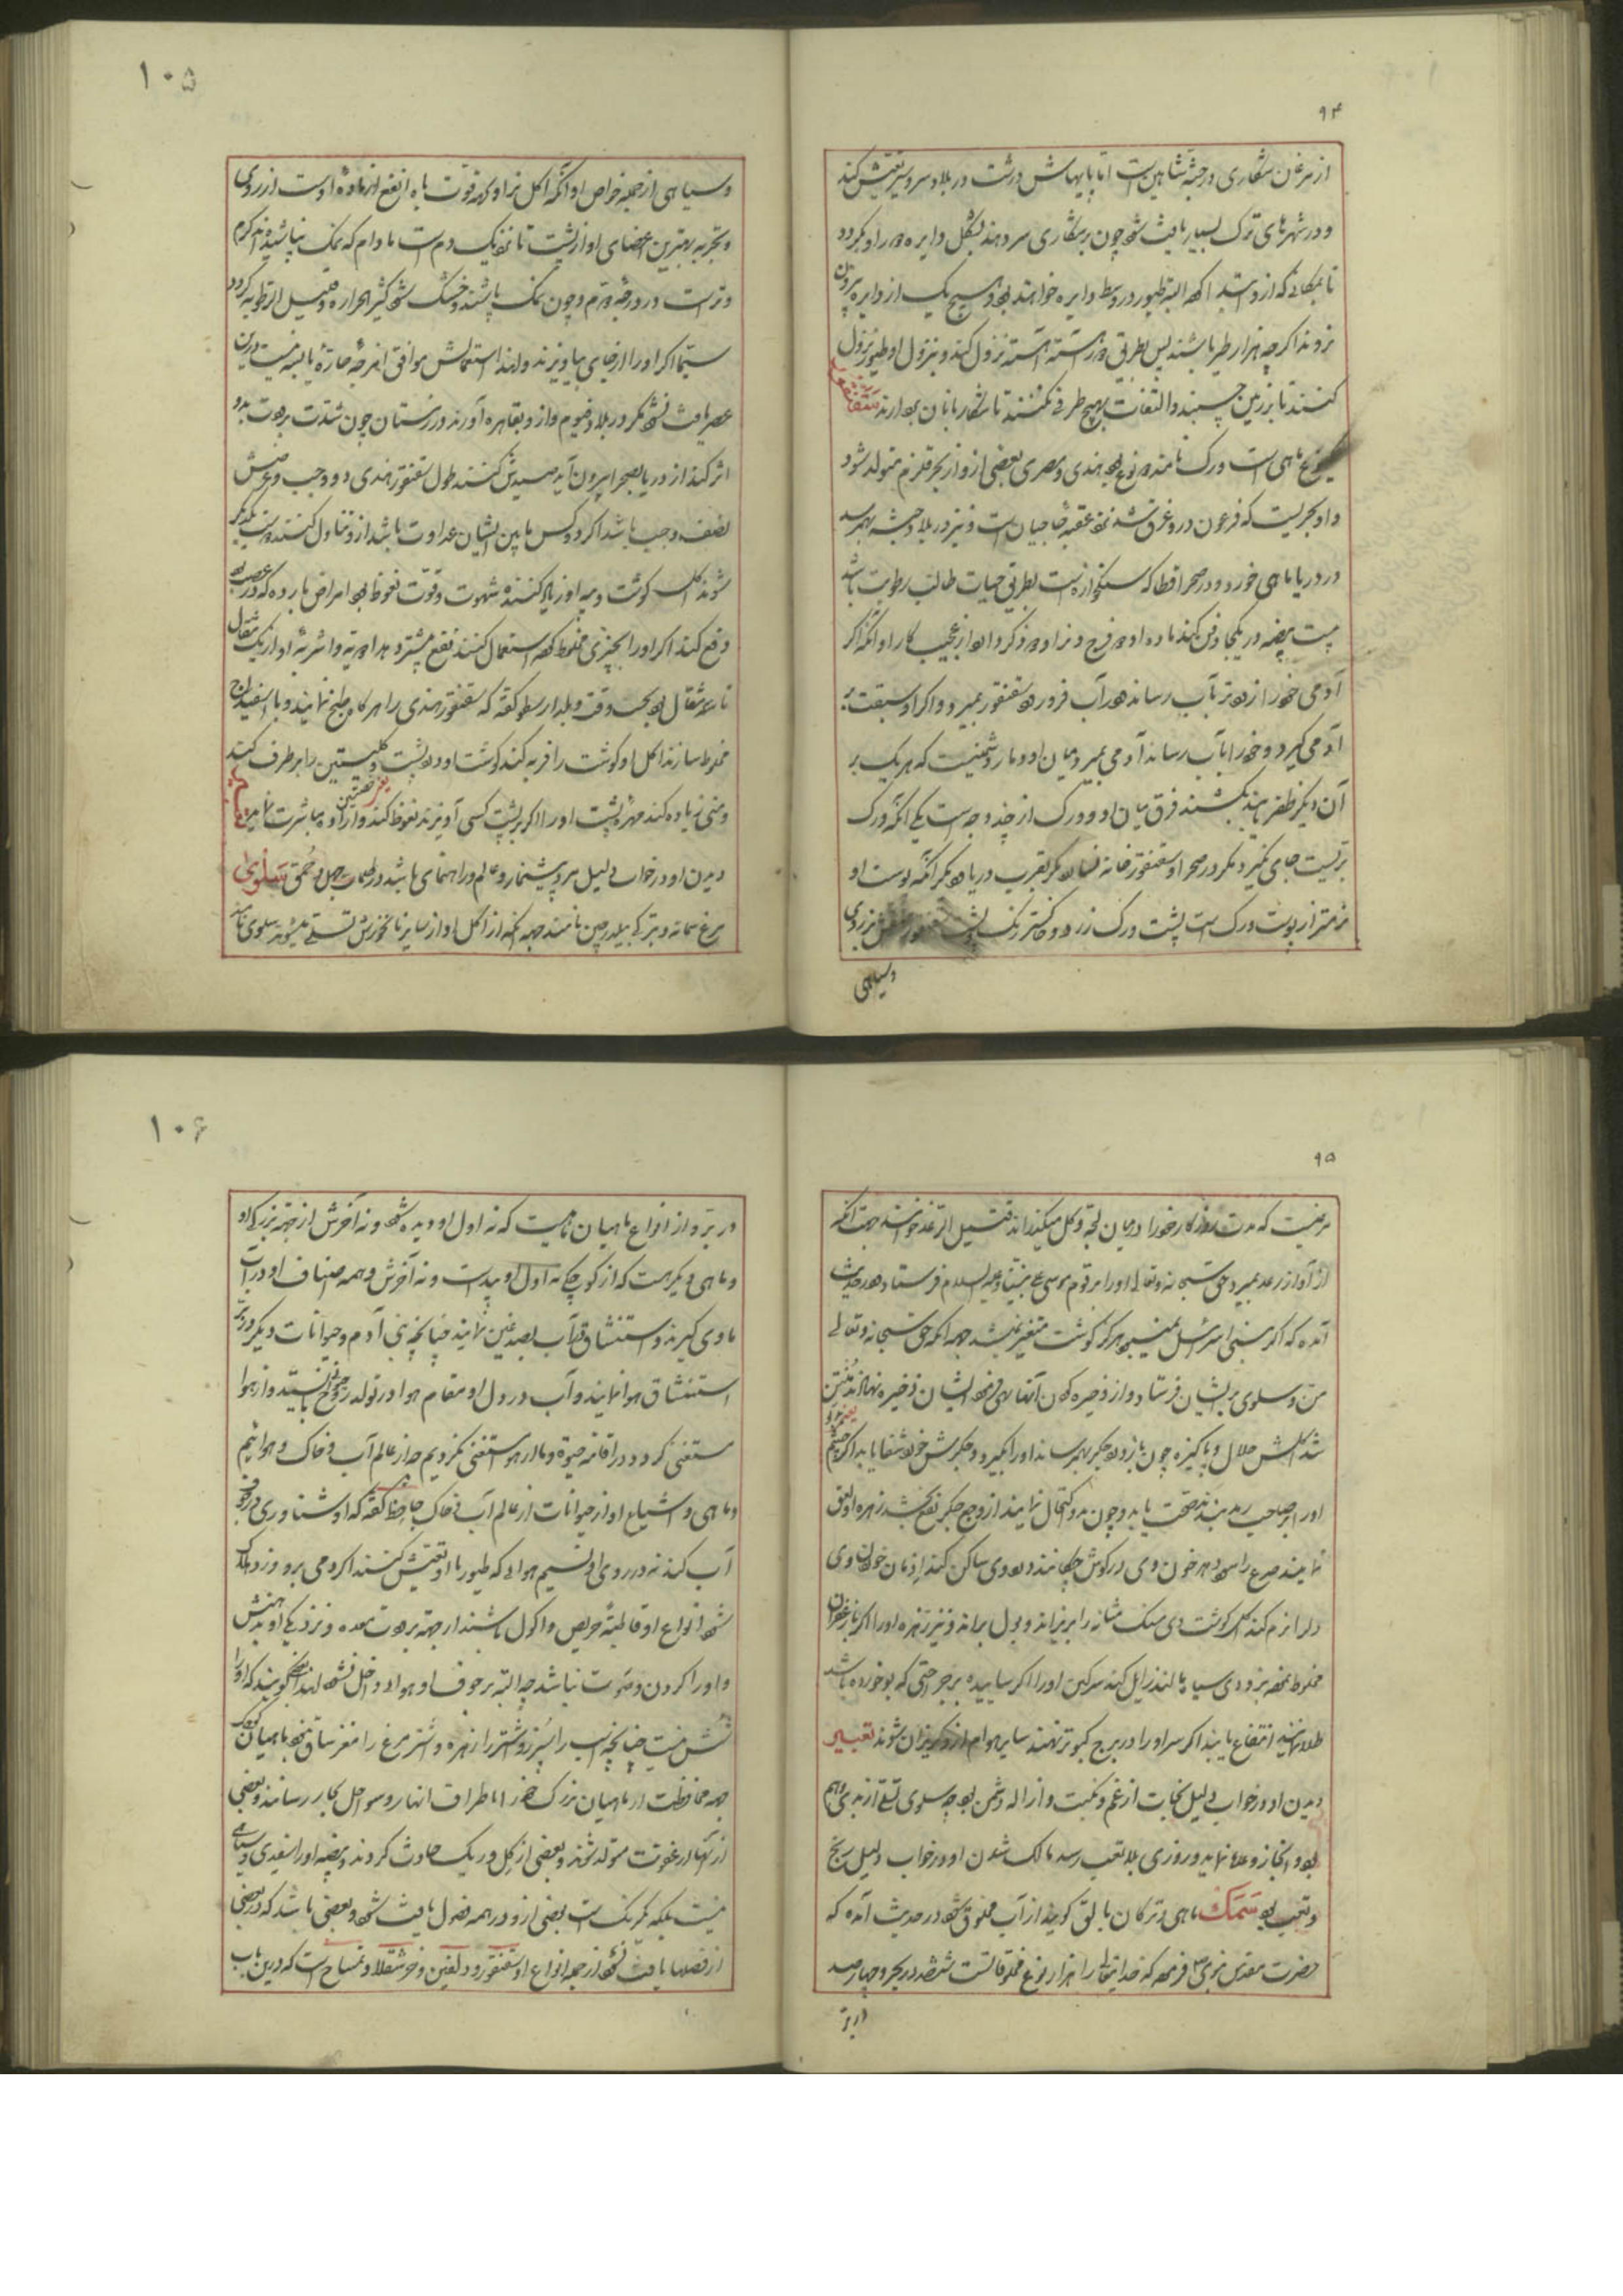 ۹۴
از مرغان شکاری در جثه شاهین است اما پایهاش درشت در بلاد سردسیر تعیش کند
و در شهرهای ترک بسیار یافت شود چون بر شکاری سر دهند بشکل دایره دور او بگردد
تا بمکانی که ازو ابتدا کرده البته طیور در وسط دایره خواهند بود و هیچ یک از دایره بیرون
نروند اگر چه هزار طیر باشند پس بطریق آهسته آهسته نزول کند و بنزول او طیور نزول
کنند تا بزمین چسبند و التفات بهیچ طرفی نکنند تا شکاربانان بردارند سقنقور
نوع ماهی است ورک نامند دو نوع بود هندی و مصری بعضی ازو از بحر قلزم متولد شود
و او بحریست که فرعون درو غرق شد نزد عقبه حاجیان است و نیز در بلاد حبشه بهم رسد
در دریا ماهی خورد و در صحرا قطا که سنگخوار است بطریق حیات طالب رطوبت باشد
بیست بیضه در یکجا دفن کند ماده او دو فرج و نر او دو ذکر دارد از عجیب کار او آنکه اگر
آدمی خود را زودتر بآب رساند در آب فرو رود سقنقور بمیرد و اگر او سبقت بر
آدمی گیرد و خود را بآب رساند آدمی بمیرد میان او و مار دشمنیست که هر یک بر
آن دیگر ظفر یابد بکشند فرق میان او و ورک از چند وجه است یکی آنکه ورک
بریست جای نگیرد مگر در صحرا و سقنقور خانه نسازد مگر بقرب دریا دیگر آنکه پوست او
نرمتر از پوست ورک است پشت ورک زرد و خاکستر رنگ پشت سقنقور منقش بزردی
وسیاهی
۱۰۵
و سیاهی از جمله خواص او آنکه اکل نر او که قوت باه انفع از ماده اوست از روی
و تجربه بهترین اعضای او از پشت تا نزدیک دم است مادام که نمک نپاشیده‌اند گرم
و تر است در درجه دوم و چون نمک پاشند و خشک شود کثیر الحراره و قلیل الرطوبه گردد
سیما اگر او را از جای بیاویزند و لهذا استعمالش موافق امزجه حاره یابسه نیست درین
عصر یافت نشود مگر در بلاد فیوم و ازو بقاهره آورند در زمستان چون شدت برودت بدو
اثر کند از دریا بصحرا بیرون آید صیدش کنند طول سقنقور هندی دو وجب و عرضش
نصف وجب باشد اگر دو کس مابین ایشان عداوت باشد ازو تناول کنند دوست یکدیگر
شوند اکل گوشت و پیه او زیاد کننده شهوت و قوت نعوظ بود امراض بارده که در عصب بود
دفع کند اگر او را بچیزی مخلوط کرده استعمال کنند نفع بیشتر دهد ادویه و اشربه او از یک مثقال
تا سه مثقال بود بحسب وقت و بلد ارسطو گفته که سقنقور هندی را هر گاه طبخ نمایند و با اسفیداج
مخلوط سازند اکل او گوشت را فربه کند گوشت او درد پشت و کلیتین را برطرف کند
و منی زیاده کند مهره پشت او را اگر بر پشت کسی آویزند نعوظ کند و اراده مباشرت نماید تعبیر
دیدن او در خواب دلیل مرد پیشنمار و عالم و راهنمای باشد در ظلمات جهل و حمق سلوی
مرغ سمانه و بترکی بیلدرچین نامند جهة آنکه از اکل او از سایر نانخورش تسلی میشود سلوی نامند
۹۵
مرغیست که مدت روزگار خود را در میان لجه و گل میگذراند قتیل الرعد خوانند جهت آنکه
از آواز رعد بمیرد حق سبحانه و تعالی او را بر قوم موسی علی نبینا و علیه السلام فرستاد در حدیث
آمده که اگر بنی اسرائیل نمیبود هرگز گوشت متغیر نمیشد جهة آنکه حق سبحانه و تعالی
من و سلوی بر ایشان فرستاد و از ذخیره کردن آنها نهی فرمود ایشان ذخیره نهادند منتن
شد اکلش حلال و پاکیزه چون باز درد جگر بهم رساند او را بگیرد و جگرش خورد شفا یابد اگر چشم
او را بر صاحب رمد بندند صحت یابد و چون بدو اکتحال نمایند از وجع جگر نفع بخشد زهره او لعق
نمایند صرع را سود دهد خون وی در گوش چکانند درد وی ساکن کند ادمان خوردن وی
دل را نرم کند اکل گوشت وی سنگ مثانه را بریزاند و بول براند و نیز زهره او را اگر با زعفران
مخلوط نموده بزودی سیاه بمالند زایل کند سرگین او را اگر ساییده بر جراحتی که بو خورده باشد
طلا نمایند انتفاع یابند اگر سر او را در برج کبوتر نهند سایر هوام ازو گریزان شوند تعبیر
دیدن او در خواب دلیل نجات از غم و نکبت و ازاله دشمن بود چه سلوی تسلی از بدی و هم
بود و انجاز وعده نماید و روزی بلا تعب رسد مالک شدن او در خواب دلیل رنج
و تعب بود سمک ماهی و ترکان بالق گویند از آب مخلوق شود در حدیث آمده که
حضرت مقدس نبوی ص فرمود که خدایتعالی را هزار نوع مخلوقاتست ششصد در بحر و چهار صد
در بر
۱۰۶
در بر و از انواع ماهیان ماهیست که نه اول او دیده شود و نه آخرش از جهة بزرگی او
و ماهی دیگر هست که از کوچکی نه اول او پیداست و نه آخرش و همه اصناف او در آب
ماوی گیرند و استنشاق آب بصدغین نمایند چنانچه بنی آدم و حیوانات دیگر در بر
استنشاق هوا نمایند و آب در دل او مقام هوا در تولد روح بایستد و از هوا
مستغنی گردد در اقامه حیوة و ما از هوا مستغنی نگردیم چه از عالم آب و خاک و هوائیم
و ماهی و اشیاع او از حیوانات از عالم آب و خاک جاحظ گفته که او شناوری در جوف
آب کند نه در روی او نسیم هوائی که طیور با او تعیش کنند اگر دمی برو وزد هلاک
شود انواع او قاطبةً حریص و اکول باشند از جهة برودت معده و نزدیکی او بدهنش
و او را گردن و صوت نباشد چه البته بر جوف او هوا داخل نشود لهذا بعضی گویند که او را
شش نیست چنانچه اسب را سپرز و شتر را زهره و شتر مرغ را مغز ساق نبود ماهیان کوچک
جهة محافظت از ماهیان بزرگ خود را باطراف انهار و سواحل بحار رسانند و بعضی
از آنها از عفونت متولد شوند و بعضی از گل و ریگ حادث گردند و بیضه او را سفیدی و سیاهی
نیست بلکه یکرنگ است بعضی ازو در همه فصول یافت شود و بعضی باشد که در بعضی
از فصلها یافت نشود از جمله انواع او سقنقور و دلفین و خرشقلا و تمساح است که درین باب